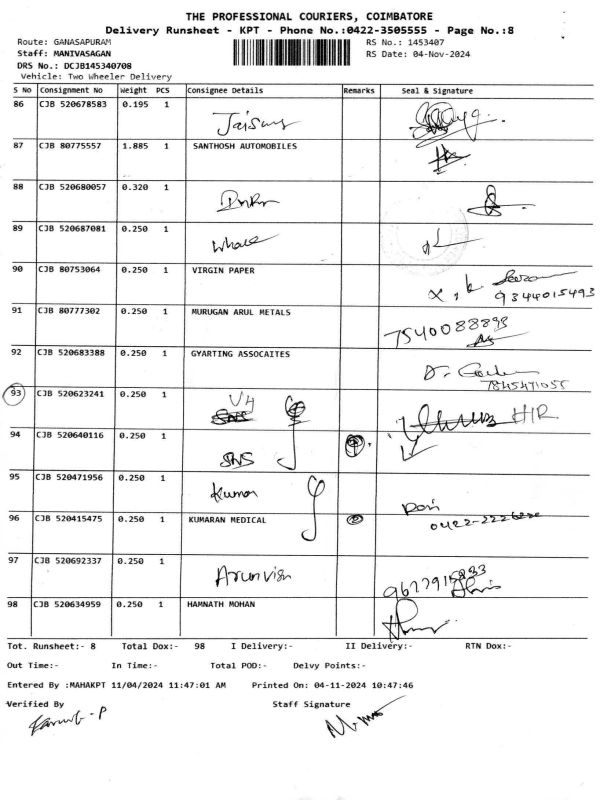 THE PROFESSIONAL COURIERS, COIMBATORE
Delivery Runsheet - KPT - Phone No.:0422-3505555 - Page No.:8
Route: GANASAPURAM RS No.: 1453407
Staff: MANIVASAGAN RS Date: 04-Nov-2024
DRS No.: DCJB145340708
Vehicle: Two Wheeler Delivery
S No Consignment No Weight PCS Consignee Details Remarks Seal & Signature
86 CJB 520678583 0.195 1
87 CJB 80775557 1.885 1 SANTHOSH AUTOMOBILES
88 CJB 520680057 0.320 1
89 CJB 520687081 0.250 1
90 CJB 80753064 0.250 1 VIRGIN PAPER
9344015493
91 CJB 80777302 0.250 1 MURUGAN ARUL METALS
7540088898
92 CJB 520683388 0.250 1 GYARTING ASSOCAITES
7845471055
93 CJB 520623241 0.250 1 V4
94 CJB 520640116 0.250 1
SNS
95 CJB 520471956 0.250 1 Kumar
96 CJB 520415475 0.250 1 KUMARAN MEDICAL
97 CJB 520692337 0.250 1 Arunvish
98 CJB 520634959 0.250 1 HAMNATH MOHAN
Tot. Runsheet:- 8 Total Dox:- 98 I Delivery:- II Delivery:- RTN Dox:-
Out Time:- In Time:- Total POD:- Delvy Points:-
Entered By :MAHAKPT 11/04/2024 11:47:01 AM Printed On: 04-11-2024 10:47:46
Verified By Staff Signature